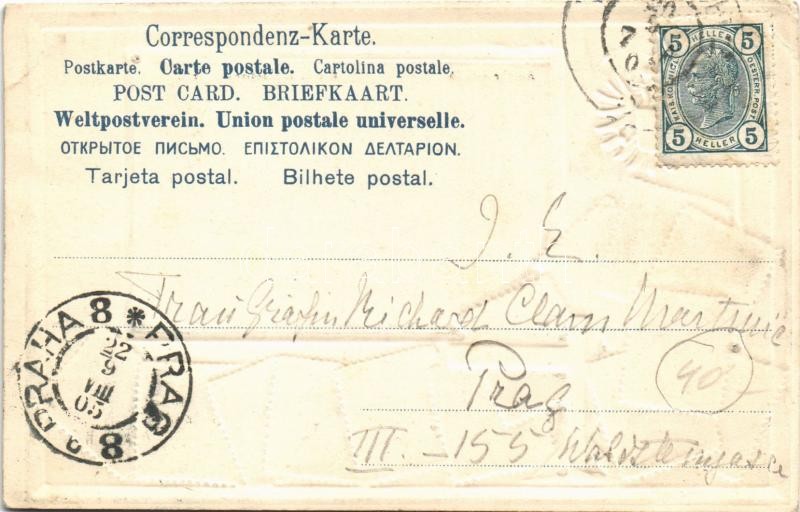 Correspondenz-Karte.
Postkarte. Carte postale. Cartolina postale.
POST CARD. BRIEFKAART.
Weltpostverein. Union postale universelle.
ОТКРЫТОЕ ПИСЬМО. ΕΠΙΣΤΟΛΙΚΟΝ ΔΕΛΤΑΡΙΟΝ.
Tarjeta postal. Bilhete postal.
5 HELLER 5
KAIS. KÖNIGL. OESTERR. POST
5 HELLER 5
J. E.
Frau Gräfin Richard Clam Martinic
Prag
III. – 155 Waldsteingasse
40
PRAHA 8 * PRAG 8
VIII
05